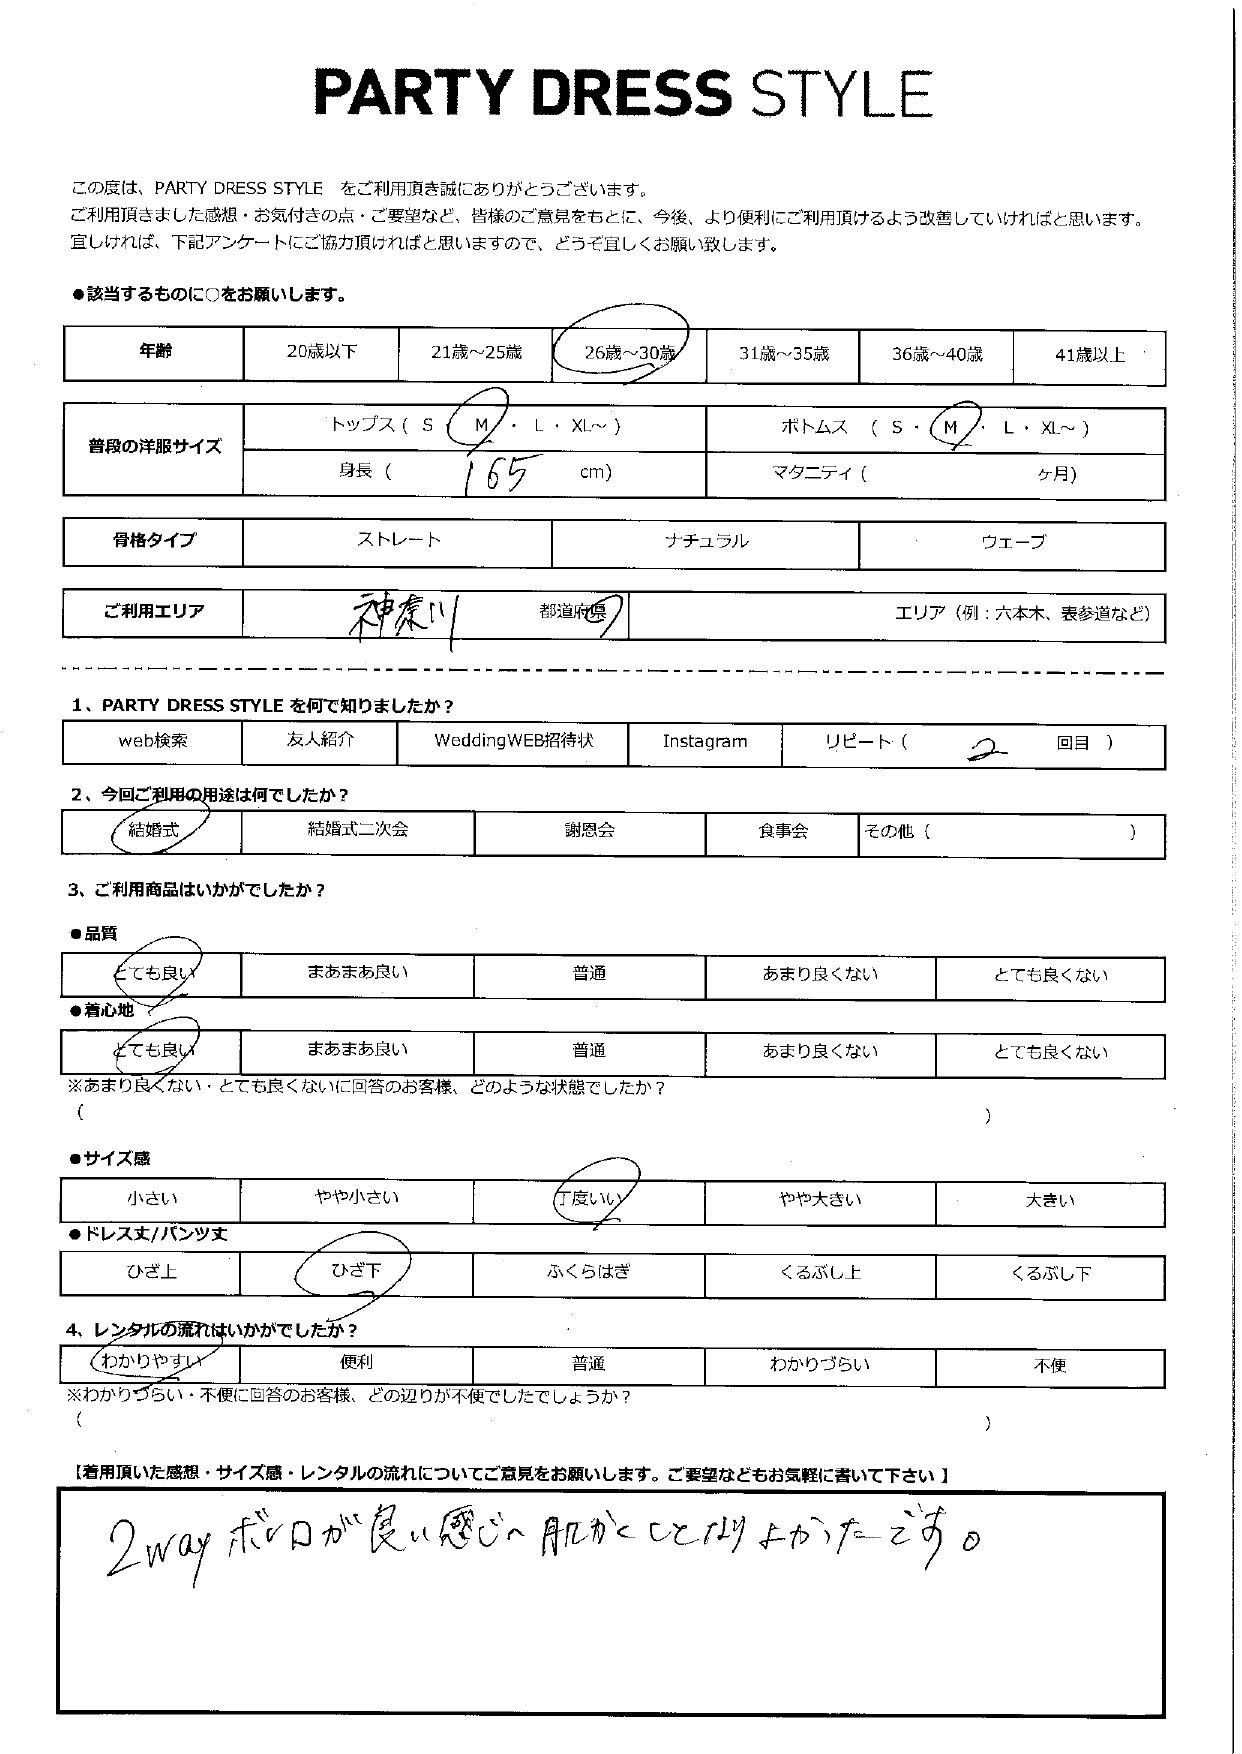 PARTY DRESS STYLE
この度は、PARTY DRESS STYLE をご利用頂き誠にありがとうございます。
ご利用頂きました感想・お気付きの点・ご要望など、皆様のご意見をもとに、今後、より便利にご利用頂けるよう改善していければと思います。
宜しければ、下記アンケートにご協力頂ければと思いますので、どうぞ宜しくお願い致します。
●該当するものに○をお願いします。
年齢 20歳以下 21歳～25歳 26歳～30歳 31歳～35歳 36歳～40歳 41歳以上
普段の洋服サイズ トップス ( S ・ M ・ L ・ XL～ ) ボトムス ( S ・ M ・ L ・ XL～ )
身長 ( 165 cm) マタニティ ( ヶ月)
骨格タイプ ストレート ナチュラル ウェーブ
ご利用エリア 神奈川 都道府県 エリア（例：六本木、表参道など）
1、PARTY DRESS STYLE を何で知りましたか？
web検索 友人紹介 WeddingWEB招待状 Instagram リピート ( 2 回目 )
2、今回ご利用の用途は何でしたか？
結婚式 結婚式二次会 謝恩会 食事会 その他 ( )
3、ご利用商品はいかがでしたか？
●品質
とても良い まあまあ良い 普通 あまり良くない とても良くない
●着心地
とても良い まあまあ良い 普通 あまり良くない とても良くない
※あまり良くない・とても良くないに回答のお客様、どのような状態でしたか？
( )
●サイズ感
小さい やや小さい 丁度いい やや大きい 大きい
●ドレス丈/パンツ丈
ひざ上 ひざ下 ふくらはぎ くるぶし上 くるぶし下
4、レンタルの流れはいかがでしたか？
わかりやすい 便利 普通 わかりづらい 不便
※わかりづらい・不便に回答のお客様、どの辺りが不便でしたでしょうか？
( )
【着用頂いた感想・サイズ感・レンタルの流れについてご意見をお願いします。ご要望などもお気軽に書いて下さい】
2way ボレロが良い感じへ 肌かくしとなり よかったです。